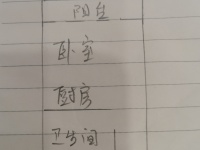 阳台
卧室
厨房
卫生间